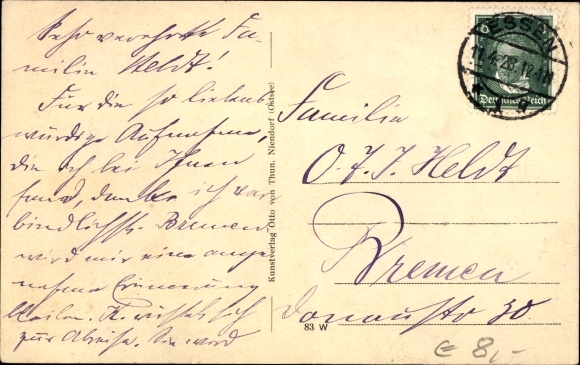 Sehr verehrte Fa-
milie Heldt!
Für die so liebens
würdige Aufnahme,
die ich bei Ihnen
fand, danke ich ver
bindlichst. Bremen
wird mir eine ange
nehme Erinnerung
bleiben. K. rüstet sich
zur Abreise. Sie wird
Kunstverlag Otto von Thun, Niendorf (Ostsee)
83 W
ESSEN
11.4.28.
8
Deutsches Reich
Familie
O. F. J. Heldt
Bremen
Donaustr 30
€ 8,-